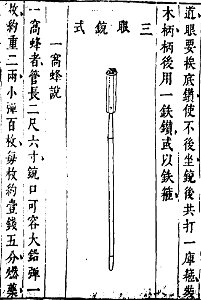 道眼要挨底鑽使不後坐銃後共打一庫箍裝
木柄柄後用一鉄鑽或以鉄箍
三眼銃式
一窩蜂說
一窩蜂者管長二尺六寸銃口可容大鉛彈一
枚約重二兩小彈百枚每枚約壹錢五分燃藥